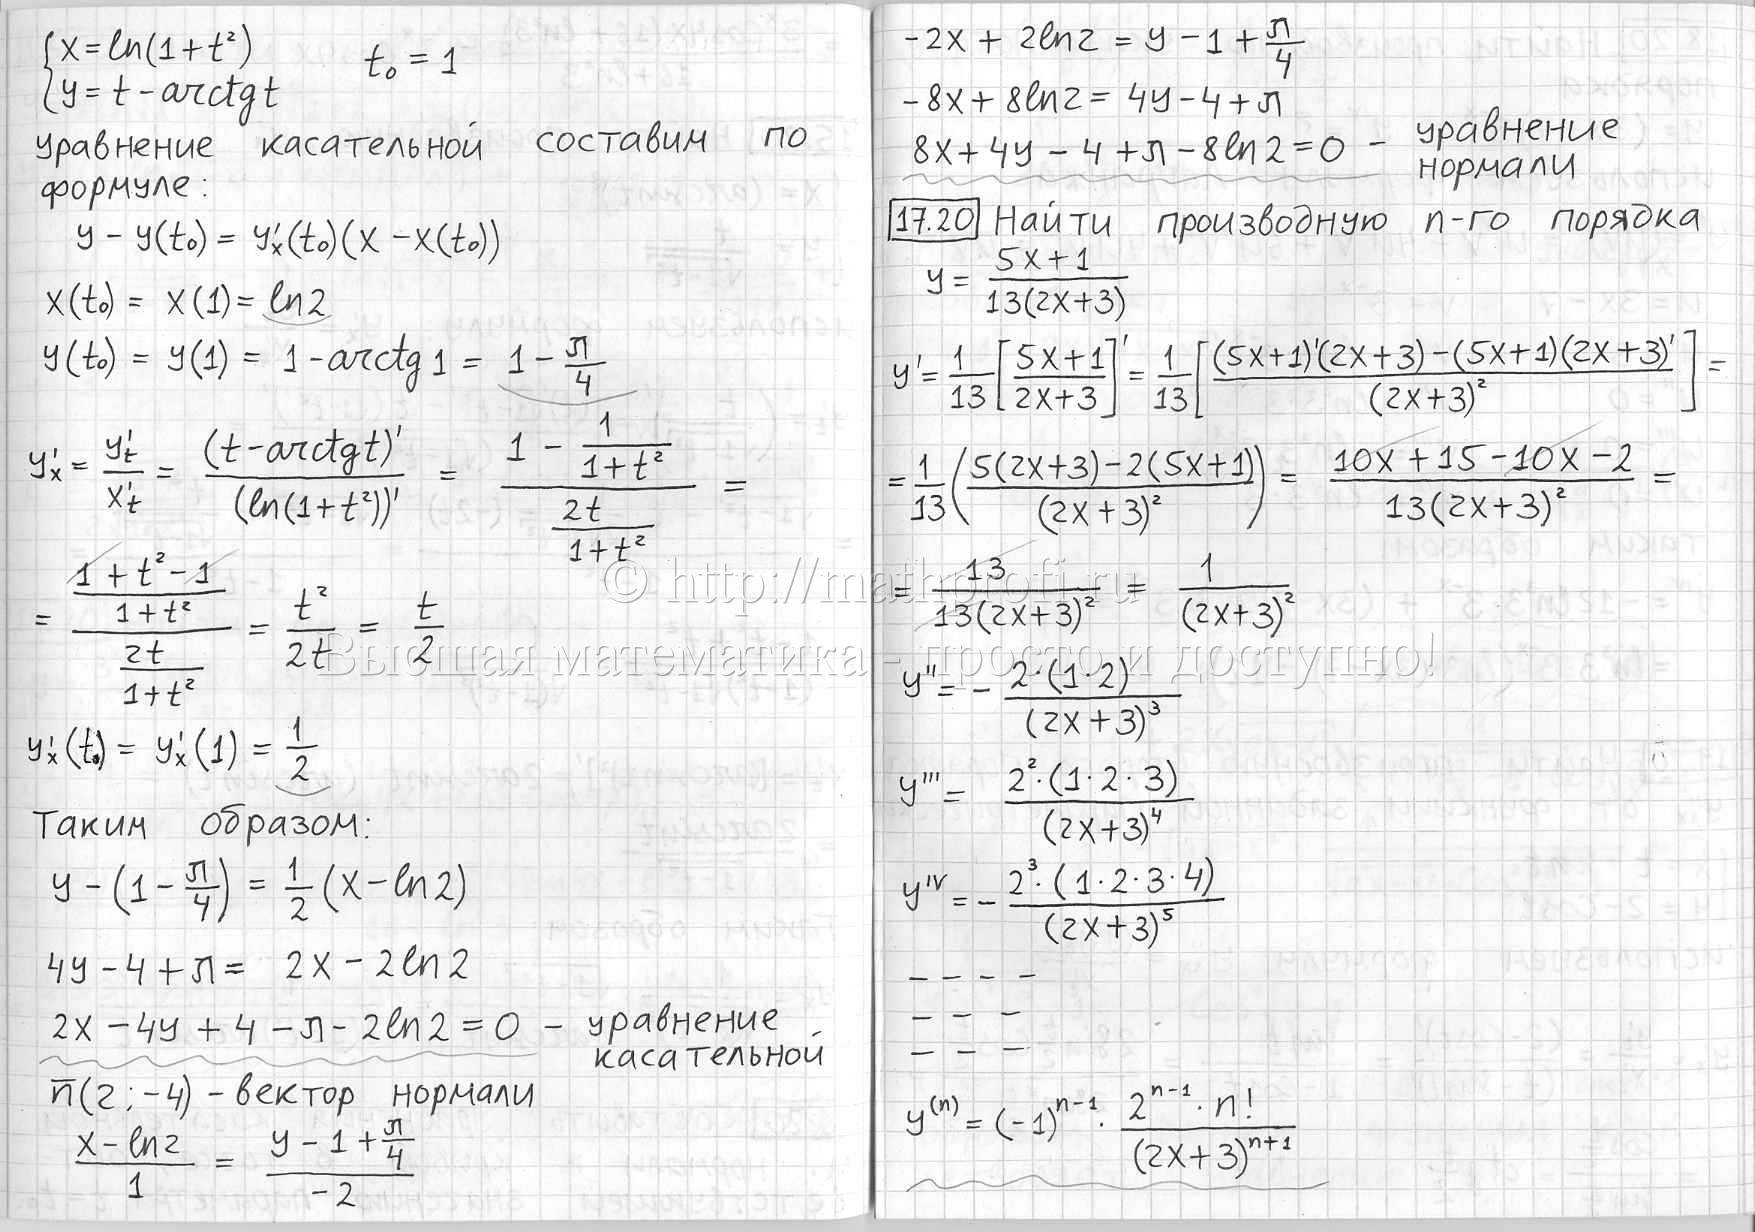 { x = ln(1+t²)
{ y = t - arctgt
t₀ = 1
уравнение касательной составим по
формуле:
y - y(t₀) = y'ₓ(t₀)(x - x(t₀))
x(t₀) = x(1) = ln2
y(t₀) = y(1) = 1 - arctg1 = 1 - π/4
y'ₓ = y't/x't = (t-arctgt)'/(ln(1+t²))' = (1 - 1/(1+t²))/(2t/(1+t²)) =
= ((1+t²-1)/(1+t²))/(2t/(1+t²)) = t²/2t = t/2
y'ₓ(t₀) = y'ₓ(1) = 1/2
Таким образом:
y - (1 - π/4) = 1/2 (x - ln2)
4y - 4 + π = 2x - 2ln2
2x - 4y + 4 - π - 2ln2 = 0 - уравнение
касательной
n̄(2; -4) - вектор нормали
(x - ln2)/1 = (y - 1 + π/4)/-2
-2x + 2ln2 = y - 1 + π/4
-8x + 8ln2 = 4y - 4 + π
8x + 4y - 4 + π - 8ln2 = 0 - уравнение
нормали
17.20 Найти производную n-го порядка
y = (5x+1)/(13(2x+3))
y' = 1/13 [(5x+1)/(2x+3)]' = 1/13 [((5x+1)'(2x+3) - (5x+1)(2x+3)')/(2x+3)²] =
= 1/13 ((5(2x+3) - 2(5x+1))/(2x+3)²) = (10x + 15 - 10x - 2)/(13(2x+3)²) =
= 13/(13(2x+3)²) = 1/(2x+3)²
y'' = - (2·(1·2))/(2x+3)³
y''' = (2²·(1·2·3))/(2x+3)⁴
y^IV = - (2³·(1·2·3·4))/(2x+3)⁵
- - - -
- - -
- - -
y⁽ⁿ⁾ = (-1)ⁿ⁻¹ · (2ⁿ⁻¹·n!)/(2x+3)ⁿ⁺¹
© http://mathprofi.ru
Высшая математика - просто и доступно!